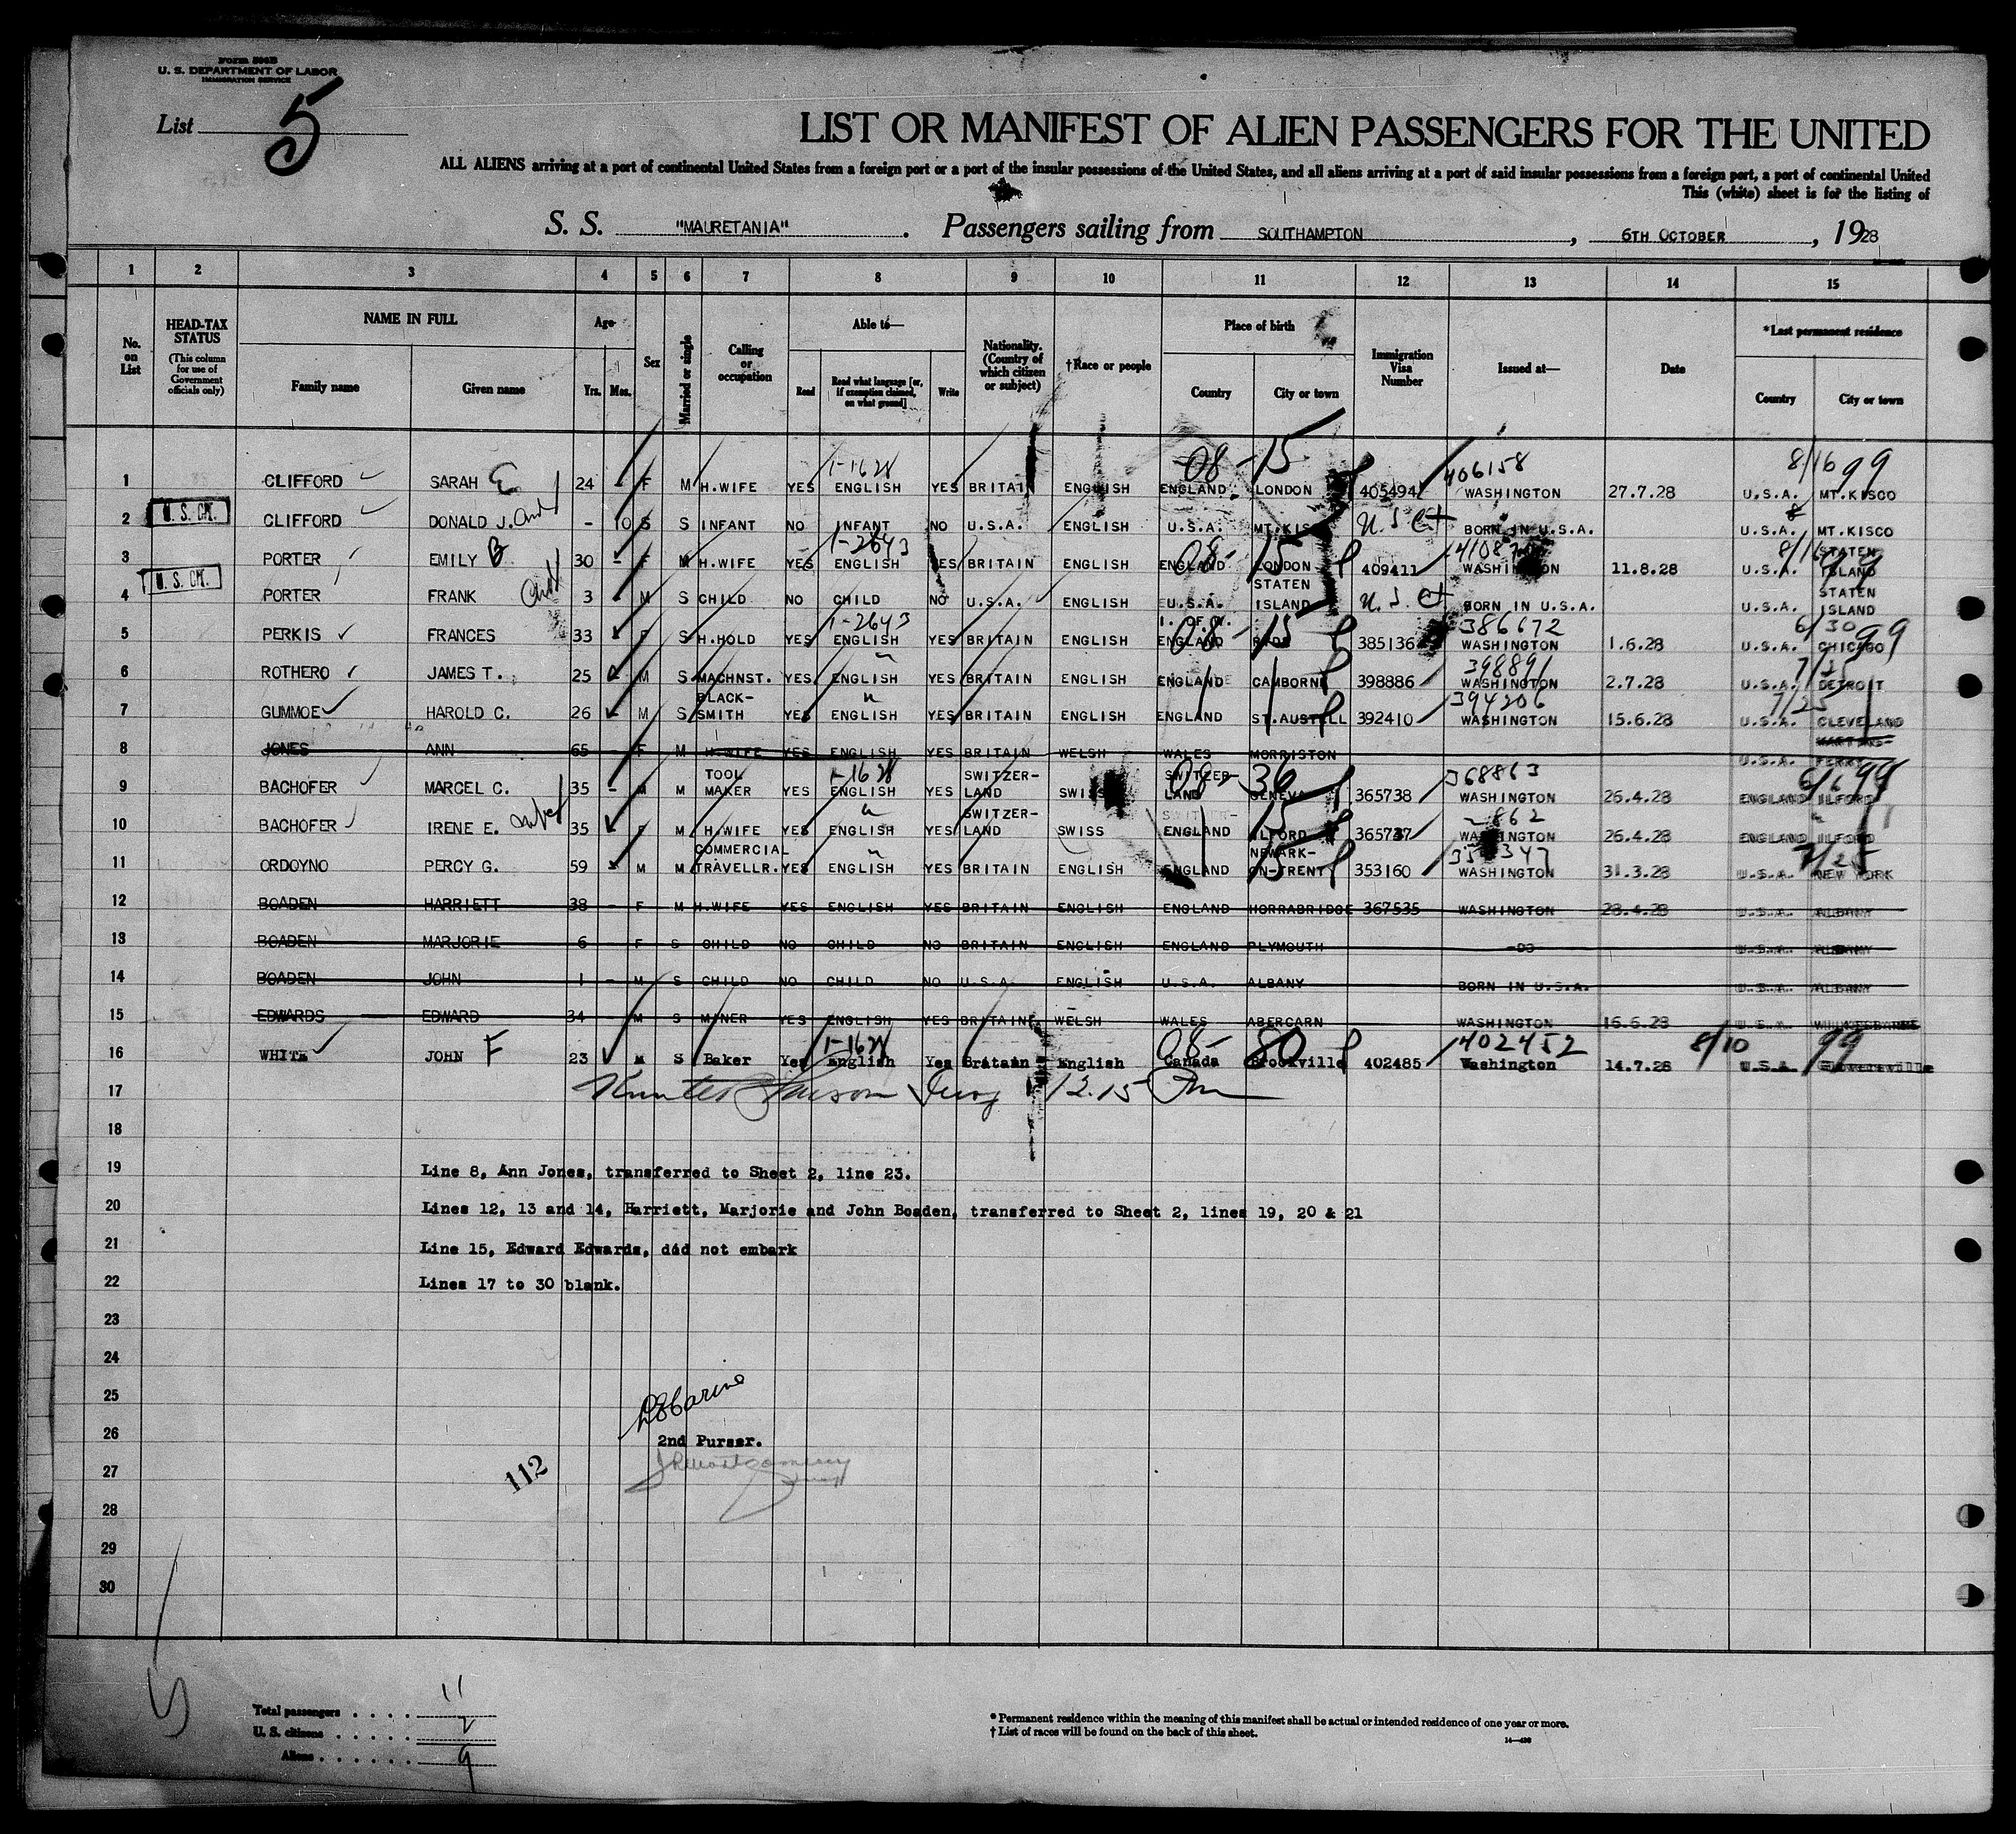 Form 500B
U. S. DEPARTMENT OF LABOR
IMMIGRATION SERVICE
List 5
LIST OR MANIFEST OF ALIEN PASSENGERS FOR THE UNITED
ALL ALIENS arriving at a port of continental United States from a foreign port or a port of the insular possessions of the United States, and all aliens arriving at a port of said insular possessions from a foreign port, a port of continental United
This (white) sheet is for the listing of
S. S. "MAURETANIA". Passengers sailing from SOUTHAMPTON, 6TH OCTOBER, 1928
1 2 3 4 5 6 7 8 9 10 11 12 13 14 15
No. on List
HEAD-TAX STATUS (This column for use of Government officials only)
NAME IN FULL Family name Given name
Age Yrs. Mos.
Sex
Married or single
Calling or occupation
Able to— Read Read what language [or, if exemption claimed, on what ground] Write
Nationality. (Country of which citizen or subject)
†Race or people
Place of birth Country City or town
Immigration Visa Number
Issued at—
Date
*Last permanent residence Country City or town
1-1628 08-15 406158 8/16 99
1 CLIFFORD SARAH E 24 - F M H.WIFE YES ENGLISH YES BRITAIN ENGLISH ENGLAND LONDON 405494 WASHINGTON 27.7.28 U.S.A. MT.KISCO
2 U.S. CIT. CLIFFORD DONALD J. - 10 S S INFANT NO INFANT NO U.S.A. ENGLISH U.S.A. MT.KISCO U S Ct BORN IN U.S.A. U.S.A. MT.KISCO
1-2643 08-15
3 PORTER EMILY B 30 - F M H.WIFE YES ENGLISH YES BRITAIN ENGLISH ENGLAND LONDON 409411 WASHINGTON 11.8.28 U.S.A. STATEN ISLAND
4 U.S. CIT. PORTER FRANK 3 - M S CHILD NO CHILD NO U.S.A. ENGLISH U.S.A. STATEN ISLAND U.S. Ct BORN IN U.S.A. U.S.A. STATEN ISLAND
1-2643 08-15 386672 6/30 99
5 PERKIS FRANCES 33 - F S H.HOLD YES ENGLISH YES BRITAIN ENGLISH ENGLAND I. OF W. RYDE 385136 WASHINGTON 1.6.28 U.S.A. CHICAGO
398891
6 ROTHERO JAMES T. 25 - M S MACHNST. YES ENGLISH YES BRITAIN ENGLISH ENGLAND CAMBORNE 398886 WASHINGTON 2.7.28 U.S.A. DETROIT
394206 7/25
7 GUMMOE HAROLD C. 26 - M S BLACK-SMITH YES ENGLISH YES BRITAIN ENGLISH ENGLAND ST.AUSTELL 392410 WASHINGTON 15.6.28 U.S.A. CLEVELAND
8 JONES ANN 65 - F M H.WIFE YES ENGLISH YES BRITAIN WELSH WALES MORRISTON U.S.A. MARTINS-FERRY
1-1628 08-36 368863
9 BACHOFER MARCEL C. 35 - M M TOOL MAKER YES ENGLISH YES SWITZER-LAND SWISS SWITZER-LAND GENEVA 365738 WASHINGTON 26.4.28 ENGLAND ILFORD
15 862
10 BACHOFER IRENE E. 35 F M H.WIFE YES ENGLISH YES SWITZER-LAND SWISS ENGLAND ILFORD 365737 WASHINGTON 26.4.28 ENGLAND ILFORD
15 7/25
11 ORDOYNO PERCY G. 59 - M M COMMERCIAL TRAVELLR. YES ENGLISH YES BRITAIN ENGLISH ENGLAND NEWARK-ON-TRENT 353160 WASHINGTON 31.3.28 U.S.A. NEW YORK
12 BOADEN HARRIETT 38 - F M H.WIFE YES ENGLISH YES BRITAIN ENGLISH ENGLAND HORRABRIDGE 367535 WASHINGTON 28.4.28 U.S.A. ALBANY
13 BOADEN MARJORIE 6 - F S CHILD NO CHILD NO BRITAIN ENGLISH ENGLAND PLYMOUTH -DO U.S.A. ALBANY
14 BOADEN JOHN 1 - M S CHILD NO CHILD NO U.S.A. ENGLISH U.S.A. ALBANY BORN IN U.S.A. U.S.A. ALBANY
15 EDWARDS EDWARD 34 - M S MINER YES ENGLISH YES BRITAIN WELSH WALES ABERCARN WASHINGTON 16.6.28 U.S.A. WILKESBARRE
1-1628 08-80 402452 8/10 99
16 WHITE JOHN F 23 M S Baker Yes English Yes Britain English Canada Brockville 402485 Washington 14.7.28 U.S.A. Gloversville
17 12.15 Pm
18
19 Line 8, Ann Jones, transferred to Sheet 2, line 23.
20 Lines 12, 13 and 14, Harriett, Marjorie and John Boaden, transferred to Sheet 2, lines 19, 20 & 21
21 Line 15, Edward Edwards, did not embark
22 Lines 17 to 30 blank.
23
24
25
26 2nd Purser.
27 112
28
29
30
5
Total passengers . . . . 11
U. S. citizens . . . . . 2
Aliens . . . . . . 9
* Permanent residence within the meaning of this manifest shall be actual or intended residence of one year or more.
† List of races will be found on the back of this sheet.